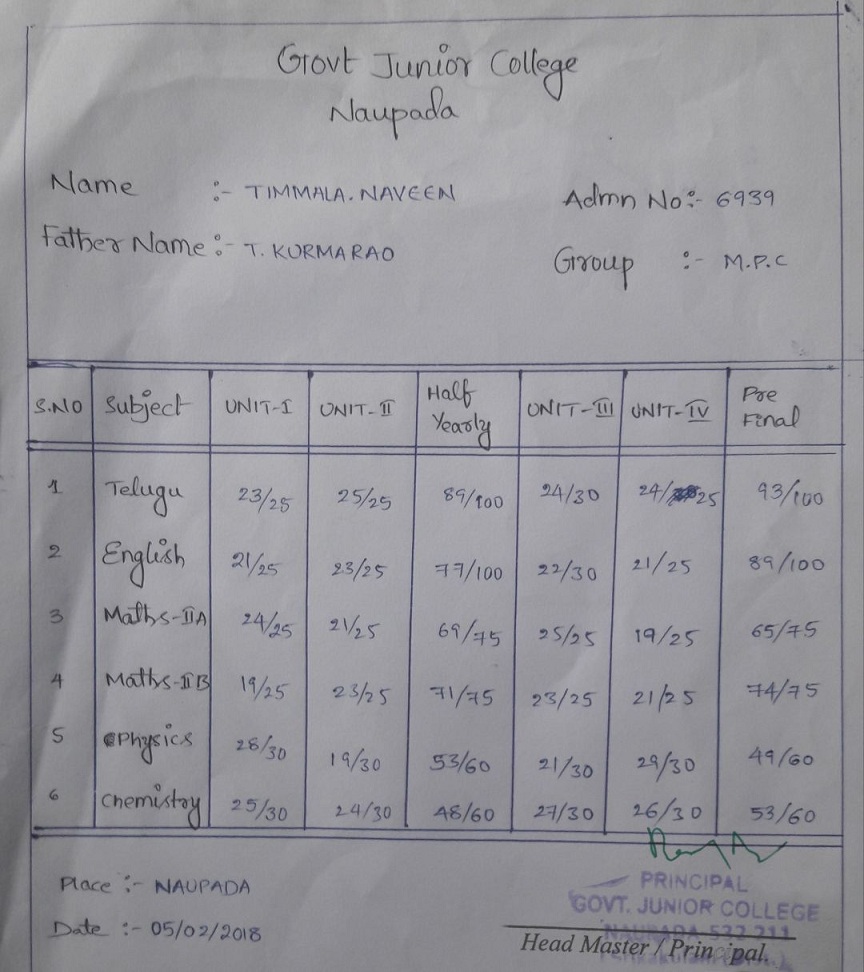 Govt Junior College
Naupada
Name :- TIMMALA. NAVEEN Admn No:- 6939
Father Name :- T. KURMARAO Group :- M.P.C
S.NO Subject UNIT-I UNIT-II Half Yearly UNIT-III UNIT-IV Pre Final
1 Telugu 23/25 25/25 89/100 24/30 24/25 93/100
2 English 21/25 23/25 77/100 22/30 21/25 89/100
3 Maths-IIA 24/25 21/25 69/75 25/25 19/25 65/75
4 Maths-IIB 19/25 23/25 71/75 23/25 21/25 74/75
5 Physics 28/30 19/30 53/60 21/30 29/30 49/60
6 Chemistry 25/30 24/30 48/60 27/30 26/30 53/60
Place :- NAUPADA
Date :- 05/02/2018
PRINCIPAL
GOVT. JUNIOR COLLEGE
NAUPADA-532 211
Head Master / Principal.